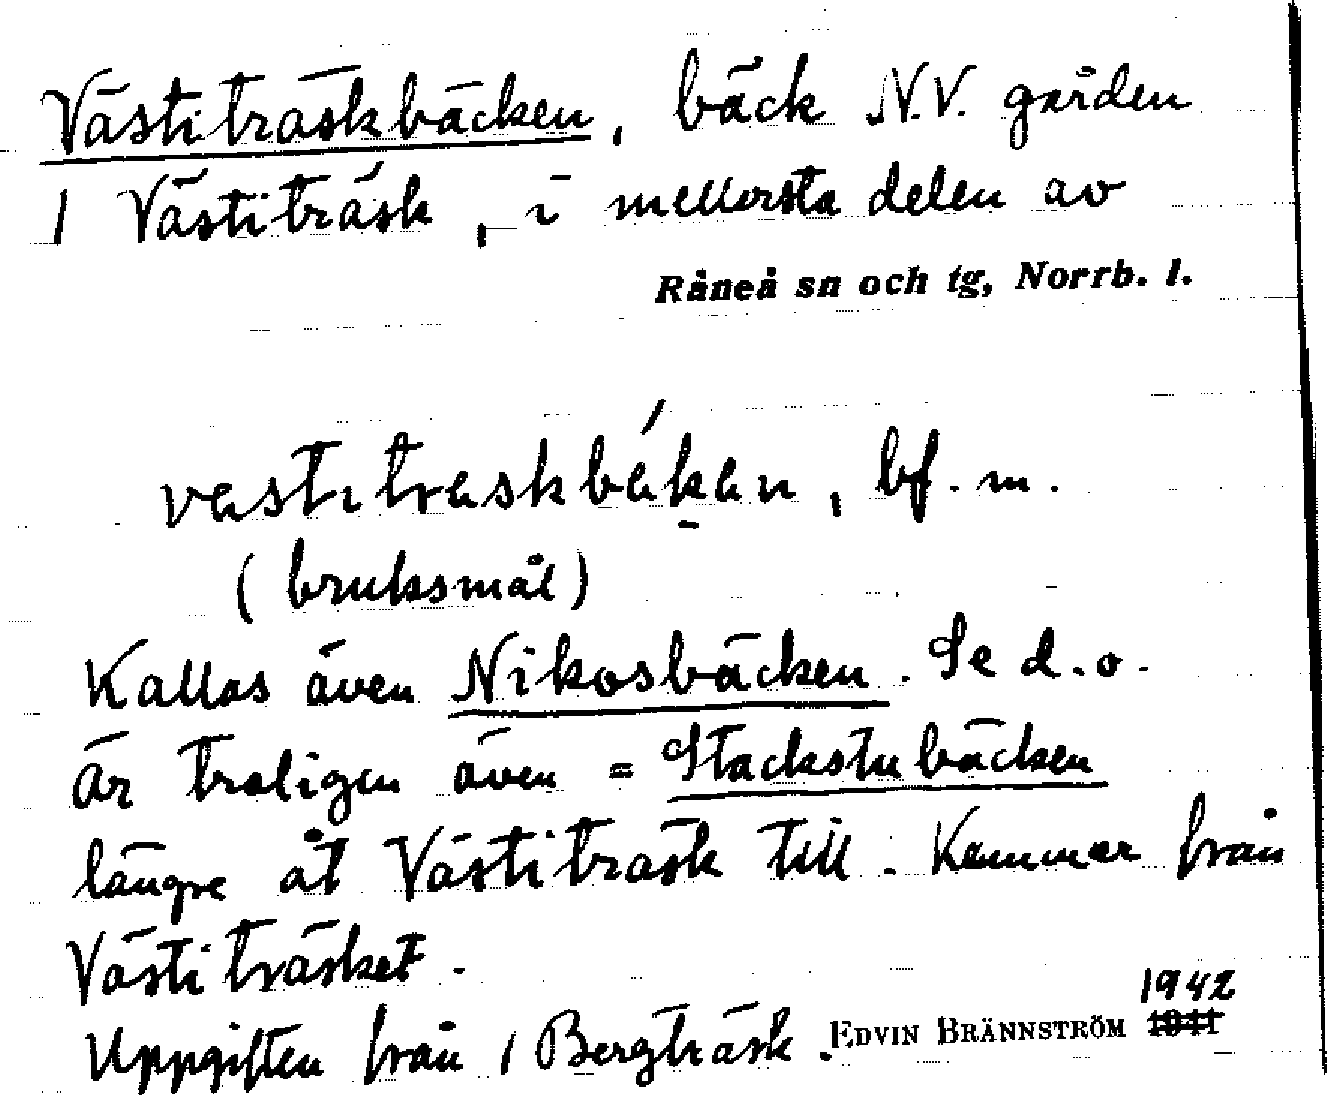 Västiträskbäcken, bäck N.V. gården
1 Västiträsk, i mellersta delen av
Råneå sn och tg, Norrb. l.
vastitraskbäkan, bf. m.
(bruksmål)
Kallas även Nikosbäcken. Se d.o.
Är troligen även = Stackstubäcken
längre åt Västiträsk till. Kommer från
Västiträsket.
Uppgiften från 1 Bergträsk. EDVIN BRÄNNSTRÖM 1942
1941